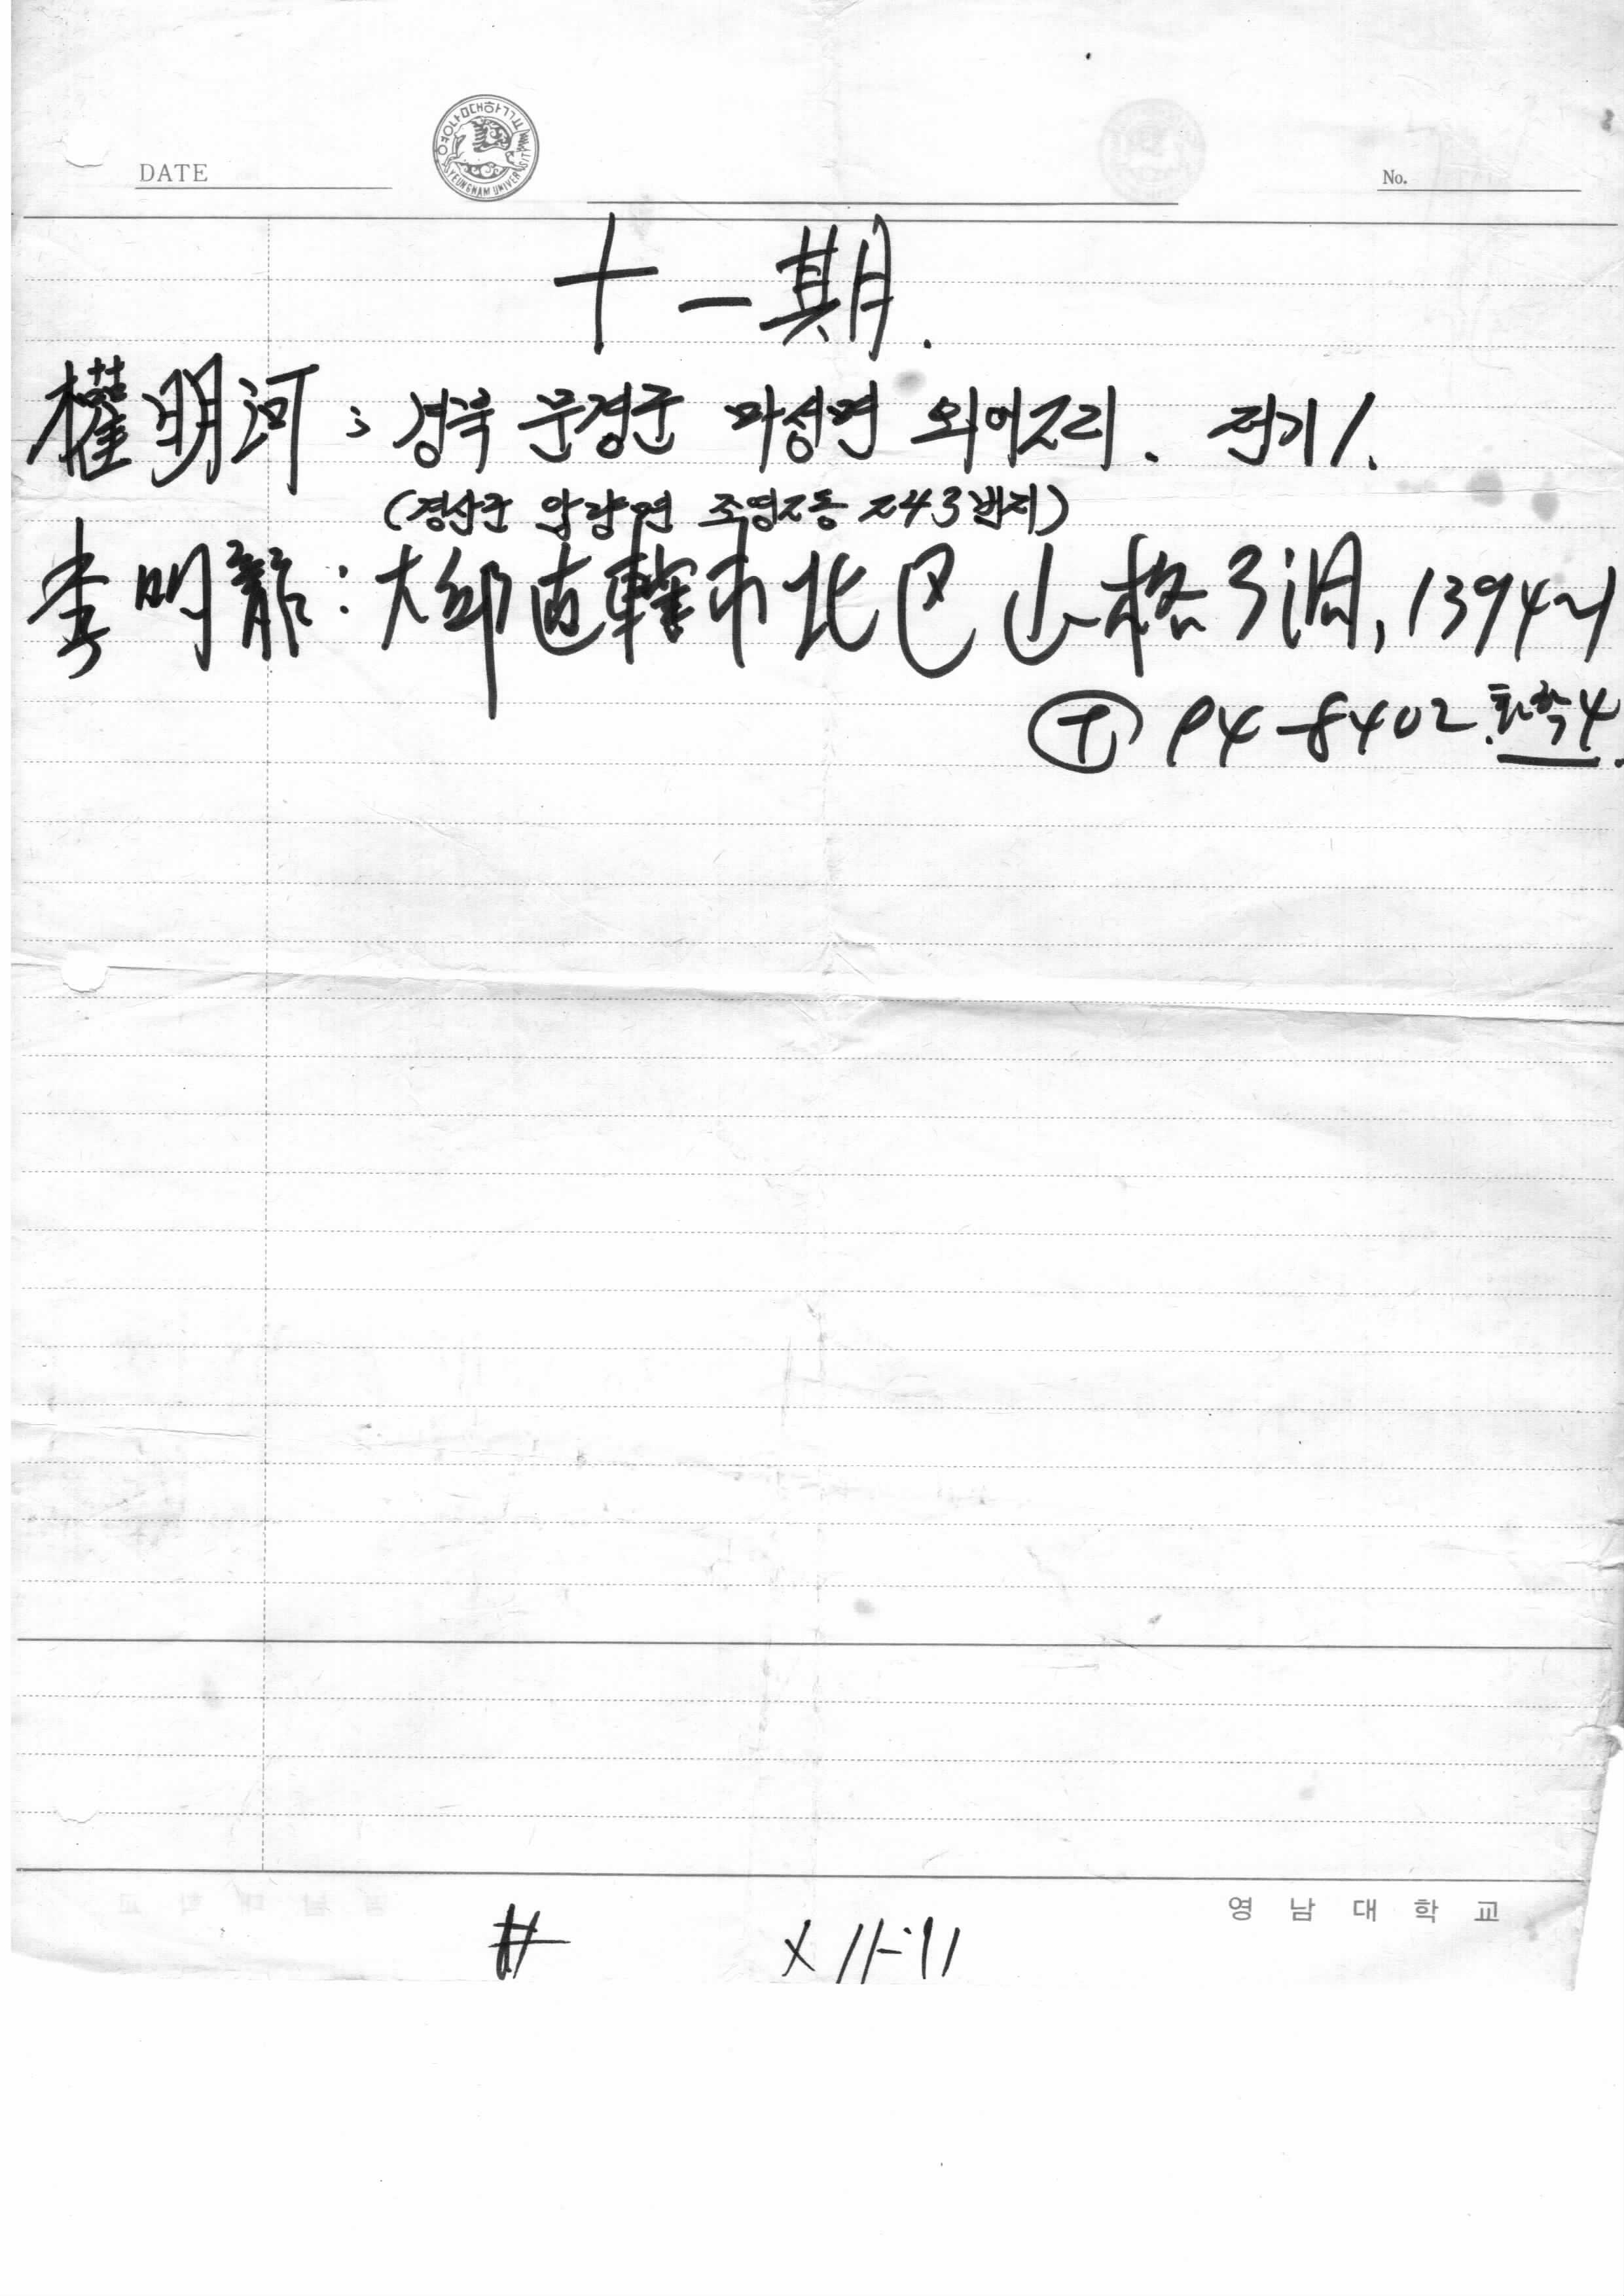 DATE
영남대학교 YEUNGNAM UNIVERSITY
No.
十一期.
權明河 : 경북 문경군 마성면 외어2리. 전기1.
(경산군 압량면 조영2동 243번지)
李明龍 : 大邱直轄市 北区 山格3洞, 1394~1
Ⓣ 94-8402. 화학4.
영남대학교
# X 11-11